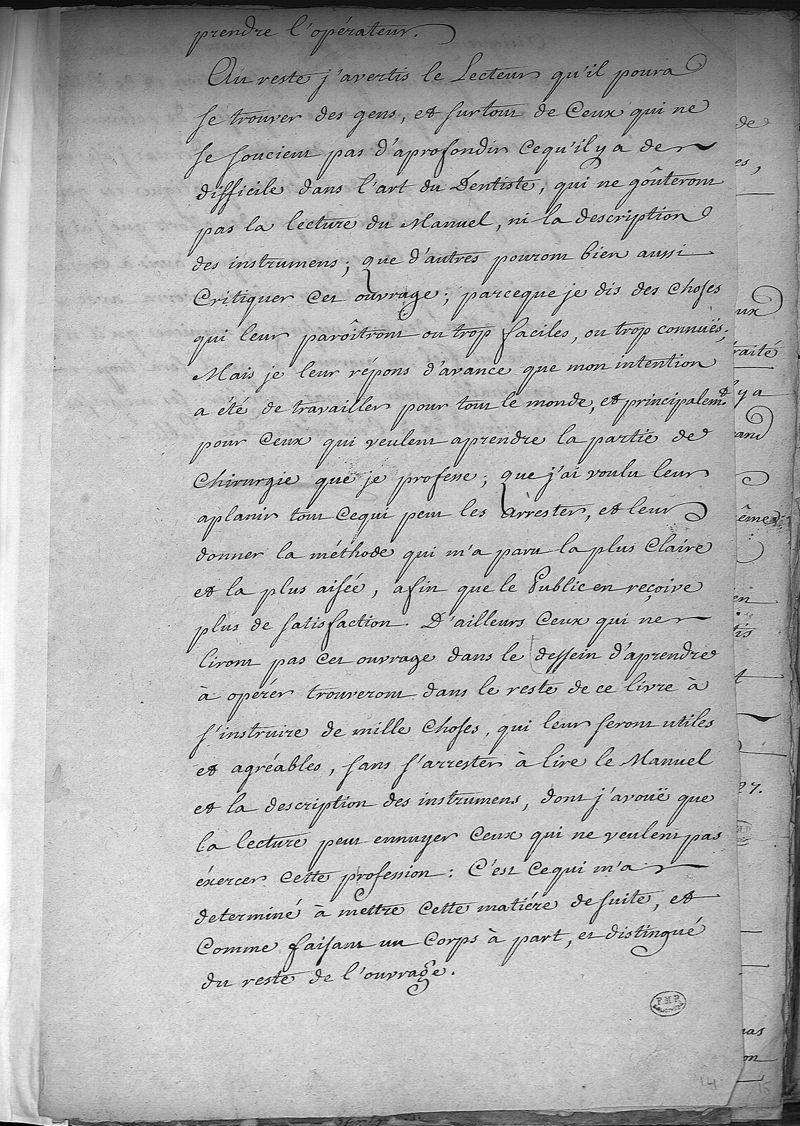 prendre l'opérateur.
Au reste j'avertis le Lecteur qu'il poura
se trouver des gens, et surtout de Ceux qui ne
se soucient pas d'aprofondir cequ'il y a de
difficile dans l'art du Dentiste, qui ne goûteront
pas la lecture du Manuel, ni la description
des instrumens; que d'autres pouront bien aussi
Critiquer cet ouvrage; parceque je dis des choses
qui leur paroîtront ou trop faciles, ou trop connuës;
Mais je leur répons d'avance que mon intention
a été de travailler pour tout le monde, et principalemt.
pour Ceux qui veulent aprendre la partie de
Chirurgie que je professe; que j'ai voulu leur
aplanir tout cequi peut les arrester, et leur
donner la méthode qui m'a paru la plus Claire
et la plus aisée, afin que le Public en reçoive
plus de satisfaction. D'ailleurs Ceux qui ne
liront pas cet ouvrage dans le dessein d'aprendre
à opérer trouveront dans le reste de ce livre à
s'instruire de mille choses, qui leur seront utiles
et agréables, sans s'arrester à lire le Manuel
et la description des instrumens, dont j'avouë que
la lecture peut ennuyer ceux qui ne veulent pas
éxercer cette profession: C'est cequi m'a
determiné à mettre cette matiére de suite, et
Comme faisant un Corps à part, et distingué
du reste de l'ouvrage.
14
15